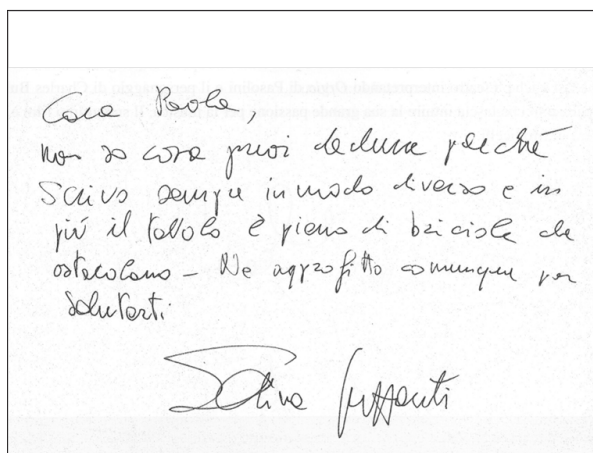 Cara Paola,
non so cosa puoi dedurre perché
scrivo sempre in modo diverso e in
più il tavolo è pieno di briciole che
ostacolano – Ne approfitto comunque per
salutarti
Sabina Guzzanti